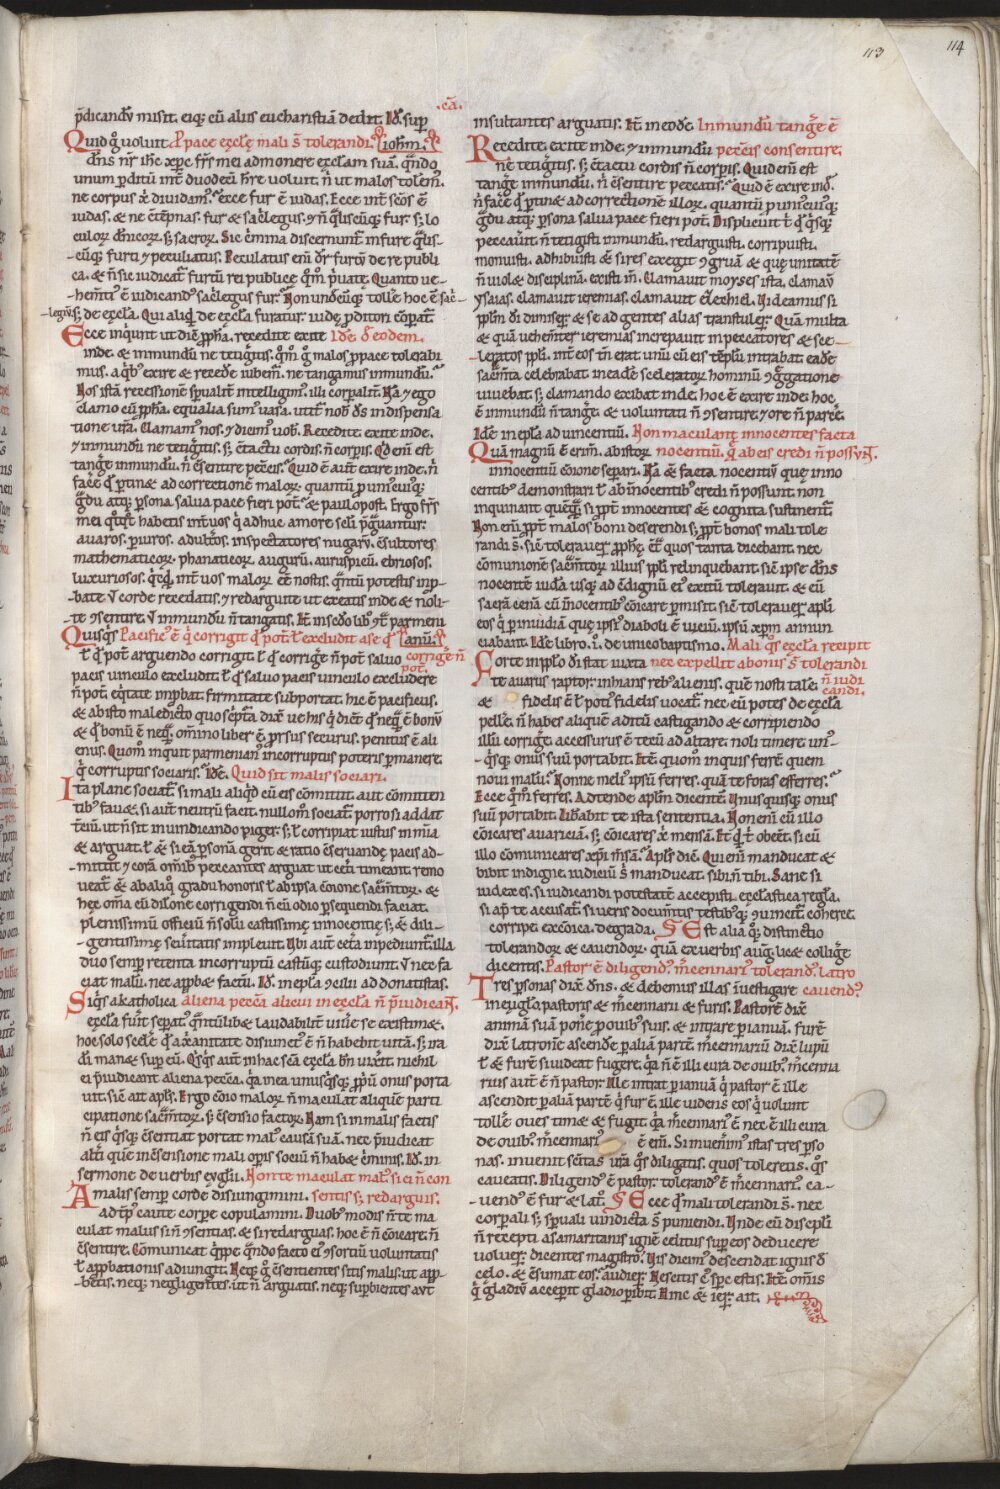 113
114
.ca.
p̄dicandū misit. eiq; cū aliis eucharistiā dedit. Id. sup
Quid ḡ voluit P pace eccl̄ę mali s̄ tolerandi. iohm̄.
dn̄s nr̄ ihc̄ xp̄c fr̄s mei admonere eccl̄am suā. qn̄do
unum p̄ditū int̄ duodeci h̄re voluit. n̄ ut malos tolem̄.
ne corpus xp̄i dividam. Ecce fur ē iudas. Ecce int̄ scōs ē
iudas. & ne cōtēpnas. fur & sacrilegus. & n̄ qualiscūq; fur. s; lo
culorum dn̄icorum. s; sacrorum. Sic crimina discernunt̄ in fure qualis
cūq; furti & peculatus. Peculatus enī dr̄ furtū de re publi
ca. & n̄ sic iudicat̄ furtū rei publicę qm̄ p̄vate. Quanto ve
hem̄t ē iudicandus sacrilegus fur. Non undecūq; tollere hoc ē sac
legiū s; de eccl̄a. Qui aliqd̄ de eccl̄a furatur. iudę p̄ditori cōparat̄.
Ecce inqiunt ut dic̄ pph̄a. recedite exite Idē de eodem.
inde. & inmundū ne tetigitis. qm̄ ḡ malos p pace tolerabi
mus. a qb; exire & recede iubem̄. ne tangamus inmundū.
Nos istā recessionē sp̄ualit̄ intelligim̄. illi corpalit̄. Na & ego
clamo cū pph̄a. equalia sum̄ vasa. utit̄ nob̄ ds̄ in dispensa
tione vr̄a. Clamam̄ nos. & dicim̄ vob̄. Recedite. exite inde.
& inmundū ne tetigitis. s; ctactu cordis. n̄ corpis. Qd̄ enī est
tang̃e inmundū. n̄ c̄sentire pcc̄is. Quid ē aut̄ exire inde. n̄
fac̃e q̄ ptinet ad correctionē malorum. quantū p unicuiq;
g̃du atq; psona salva pace fieri pot̄. & paulo post. Ergo fr̄s
mei quotqt̄ habetis int̄ vos q̄ adhuc amore sc̄li p̄gravantur.
avaros. piuros. adult̃os. inspectatores nugarū. c̄sultores
mathematicorum. phanaticorum. augurū. auruspicū. ebriosos.
luxuriosos. qcqd̄ int̄ vos malorum eē nostis. qn̄tū potestis inp
bate. ut corde recedatis. & redarguite ut exeatis inde & noli
te c̄sentire. ut inmundū n̄ tangatis. It̄ in secdo libro c̄t̄ parmeni
Quisq̄s Pacific̄ ē q̄ corrigit q̄ pot̄ ł excludit a se q̄ anū.
ł q̄ pot̄ arguendo corrigit. ł q̄ corrig̃e n̄ pot̄ salvo corrig̃e n̄ pot̄.
pacis vinculo excludit. ł q̄ salvo pacis vinculo excludere
n̄ pot̄. eq̄tate inpbat. firmitate supportat. hic ē pacificus.
& ab isto maledicto quo sc̄pta dic̄ ve his q̄ dic̄t q̄ neq̄ ē bonū
& q̄ bonū ē neq̄. om̄ino liber ē. p̄rsus securus. penitus ē ali
enus. Quom̄ inquit parmenian̄ incorruptus poteris p̄manere.
q̄ corruptis sociaris. Idē. Quid sit malis sociari.
Ita plane sociat̄. si mali aliqd̄ cū eis com̄ittit. aut com̄itten
tib; favet. si aut̄ neutrū facit. nullom̄ sociat̄. porro si addat
terciū. ut n̄ sit in vindicando piger. s; ł corripiat iustus in mīa
& arguat. ł & si eā psonā gerit & ratio c̄servandę pacis ad
mittit & corā om̄ib; peccantes arguat ut cetī timeant. remo
veat̄ & ab aliq̄ gradu honoris ł ab ipsa cōione sacm̄torum. &
hec om̄a cū dilc̄one corrigendi n̄ cū odio psequendi faciat.
plenissimū officiū n̄ solū castissimę innocentię s; & dili
gentissimę sev̄itatis implevit. Ubi aut̄ cet̄a inpediunt̄. illa
duo semp retenta incorruptū castūq; custodiunt. ut nec fa
ciat malū. nec appbet factū. Id. in epl̄a xl̄viii ad donatistas.
Siq̄s a katholica aliena pcc̄a alicui in eccl̄a n̄ p̄iudicant̄.
eccl̄a fuit̄ sepat̄. qn̄tūlibet laudabilit̄ vivere se existimet.
hoc solo scel̃e q̄ a xp̄i unitate disiunct̄ ē n̄ habebit vitā. s; ira
di manet sup eū. Qisq̄s aut̄ in hac scā eccl̄a bn̄ vix̄it nichil
ei p̄iudicant aliena pcc̄a. qa in ea unusqisq; pp̄ū onus porta
vit. sic̄ ait apl̄s. Ergo c̄oio malorum n̄ maculat aliquē parti
cipatione sacm̄torum. s; c̄sensio factorum. Nam si in malis factis
n̄ eis qsq; c̄sentiat portat mal̄ causā suā. nec p̄iudicat
alt̄i quē in c̄sensione mali opis sociū n̄ habet c̄minis. Id. in
sermone de verbis evgl̄ii. Non te maculat mal̄. si ei n̄ con
A malis semp corde disiungimini. sentis s; redarguis.
ad tp̄ caute corpe copulamini. Duob; modis n̄ te ma
culat malus si n̄ c̄sentias. & si redarguis. hoc ē n̄ c̄oicare. n̄
c̄sentire. Com̄unicat q̄ppe qn̄do facto ei c̄sortiū voluntatis
ł appbationis adiungit. Neq; ḡ c̄sentientes sitis malis. ut app
betis. neq; negligentes. ut n̄ arguatis. neq; supbientes aut
insultantes arguatis. It̄ in eodē. Inmundū tang̃e ē
Recedite. exite inde. & inmundū pcc̄is consentire.
ne tetigitis. s; c̄tactu cordis n̄ corpis. Quid em̄ est
tang̃e inmundū. n̄ c̄sentire peccatis. Quid ē exire inde
n̄ fac̃e q̄ ptinet ad correctionē illorum. quantū p unicuiq;
g̃du atq; psona salua pace fieri pot̄. Displicuit t̄ q̄ qsq;
peccavit. n̄ tetigisti inmundū. redarguisti. corripuisti.
monuisti. adhibuisti & si res exegit c̄gruā & quę unitatē
n̄ violet disciplinā. existi in̄. Clamavit moyses ista. clamav̄
ysaias. clamavit ieremias. clamavit ezechiel. Videamus si
pplm̄ di dimiser̄. & se ad gentes alias transtuler̄. Quā multa
& quā vehem̄ter ieremias increpavit in peccatores & sce
leratos ppl̄i. int̄ eos tn̄ erat. unū cū eis tēplū intrabat. eadē
sacm̄ta celebrabat. in eadē sceleratorum hominū c̄g̃gatione
vivebat. s; clamando exibat inde. hoc ē exire inde. hoc
ē inmundū n̄ tang̃e. & voluntati n̄ c̄sentire. & ore n̄ parc̃e.
Idē in epl̄a ad vincentiū. Non maculant innocentes facta
Quā magnū ē crim̄. ab istorum nocentiū. q̄ ab eis credi n̄ possunt̄.
innocentiū c̄oione separi. Na & facta nocentiū quę inno
centib; demonstrari ł ab innocentib; credi n̄ possunt non
inquinant quēq̄. si ppt̄ innocentes & cognita sustinent̄.
Non enī ppt̄ malos boni deserendi s; ppt̄ bonos mali tole
randi s̄. sic̄ tolerauer̄ pph̄ę. c̄t̄ quos tanta dicebant. nec
c̄munionē sacm̄torum illius ppl̄i relinquebant. sic̄ ipse dn̄s
nocentē iudā usq; ad c̄dignū ei exitū toleravit. & eū
sacrā cenā cū innocentib; c̄oicare pmisit. sic̄ toleraver̄ apl̄i
eos q̄ p invidiā que ipsi diaboli ē viciū. ipsū xp̄m annun
ciabant. Idē libro .i. de unico baptismo. Mali q̄s eccl̄a recipit
Forte in pplo di stat iuxta nec expellit a bonis s̄ tolerandi
te avarus raptor. inhians reb; alienis. quē nosti talē. n̄ iudi
& fidelis ē ł poti fidelis vocat̄. nec eū potes de eccl̄a candi.
pelle̅. n̄ habes aliquē aditū castigando & corripiendo
illū corrig̃e. accessurus ē tecū ad altare. noli timere. un
qsq; onus suū portabit. Itē quom̄ inquis ferrē quem
novi malū. Nonne meli ipsū ferres. quā te foras efferres.
Ecce qm̄ ferres. Adtende aplm̄ dicentē. Unusquisq; onus
suū portabit. Lib̃abit te ista sententia. Non enī cū illo
c̄oicares avariciā. s; c̄oicares xp̄i mensā. Et qd̄ t̄ obeēt. si cū
illo com̄unicares xp̄i mēsā. Apl̄s dic̄. Qui enī manducat &
bibit indigne. iudiciū s̄ manducat. sibi n̄ tibi. Sane si
iudex es. si iudicandi potestatē accepisti. eccl̄astica regla.
si ap̄ te accusat̄. si veris docum̄tis testib; q; convincit̄. coherce.
corripe. exc̄onica. degrada. § Est alia q; distinctio
tolerandorum & cavendorum. quā ex verbis aug̃. licet collig̃e
dicentis. Pastor ē diligend. m̃cennari tolerand. latro
Tres psonas dix̄ dn̄s. & debemus illas īvestigare cavend.
in evglo. pastoris & m̃cennarii & furis. Pastorē dix̄
animā suā poñe p ovib; suis. & intrare p ianuā. furē
dix̄ & latronē ascend̃e p aliā partē. m̃cennariū dix̄ lupū
ł & furē si videat fugere. qa n̄ ē illi cura de ovib;. m̃cenna
rius aut̄ ē n̄ pastor. Ille intrat p ianuā q̄ pastor ē. ille
ascendit p aliā partē q̄ fur ē. ille videns eos q̄ volunt
toll̃e oves timet & fugit. qa m̃cennari ē. nec ē illi cura
de ovib;. m̃cennari ē em̄. Si invenim̄ istas tres pso
nas. invenit scītas vr̄a q̄s diligatis. quos toleretis. q̄s
caveatis. Diligend ē pastor. tolerand ē m̃cennari. ca
vend ē fur & lat̄. § Ecce q̄ mali tolerandi s̄. nec
corpali s; sp̄uali vindicta s̄ puniendi. Unde cū discipl̄i
n̄ recepti a samaritanis ignē celitus sup eos deducere
voluer̄. dicentes magistro. Vis dicim̄ descendat ignis de
celo. & c̄sumat eos. audier̄. Nescitis c̄ sp̄c estis. Itē. om̄is
q̄ gladiū acceperit gladio peribit. Hinc & ier̄. ait.